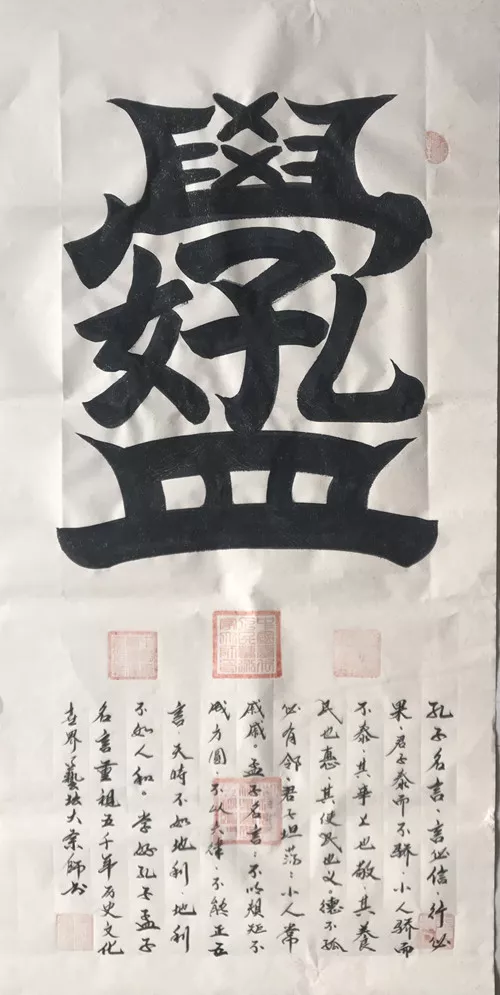 學好孔孟
孔子名言:言必信·行必
果·君子泰而不骄·小人骄而
不泰·其事上也敬·其養
民也惠·其使民也义·德不孤
必有邻·君子坦荡荡·小人常
戚戚。孟子名言:不以规矩不
成方圆·不以六律·不能正五
音·天時不如地利·地利
不如人和。学好孔子孟子
名言重祖五千年历史文化
世界藝坛大宗師书